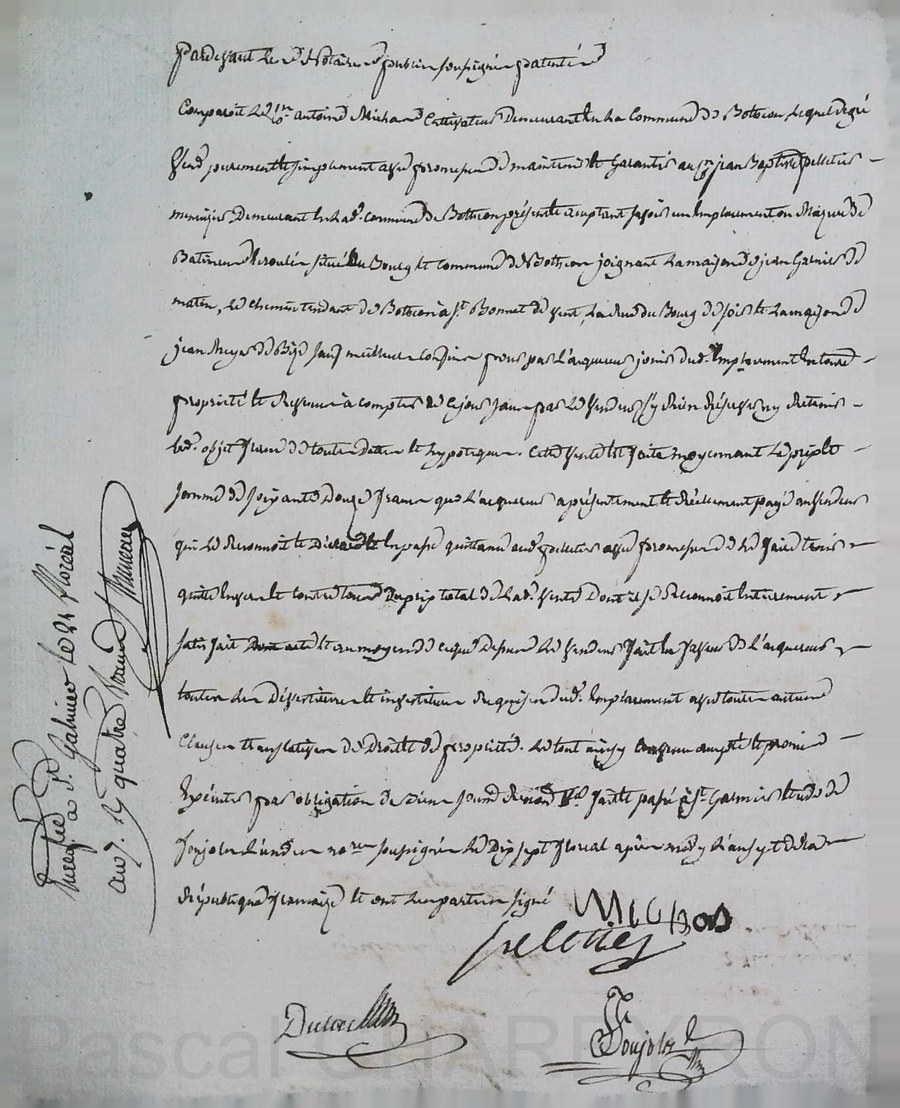 Pardevant le nre Notaire public soussigné patenté
Comparoit le cen antoine Michaud Cultivateur Demeurant en la Commune de Bothéon lequel de gré
Vend purement et simplement avec promesse de maintenir et Garantir au cen jean Baptiste pelletier
menuisier Demeurant en lad. commune de Bothéon présent et acceptant savoir un Emplacement ou Mazure de
Batiment Ecroulée située au Bourg et Commune de Bothéon joignant la maison de jean Garnier de
matin, le chemin tendant de Bothéon à st. Bonnet de vent, la rue du Bourg de soir et la maison de
jean de Bize sauf meilleurs confins pour par l'acquereur jouir dud. Emplacement en toute
propriété et Revenu à compter de ce jour sans par le vendeur s'y rien réserver ny retenir
led. objet franc de toute dette et hypoteque. Cette vente est faite moyennant le prix et
somme de soixante Douze francs que l'acquereur a présentement et réellement payé au vendeur
qui le Reconnoit et en passe quittance aud. pelletier avec promesse de le faire tenir
quitte envers et contre tous Du prix total de lad. vente Dont il se Reconnoit Entierement
satisfait et au moyen de ce que Dessus le vendeur fait en faveur de l'acquereur
toutes les Dévestitures et investitures Requises dud. Emplacement avec toutes autres
Clauses translatives de Droits de propriété. Le tout ainsy convenu accepté et promis
Exécuter par obligation de Biens fait et passé à st. Galmier Etude de
Ponjolas l'un des nores soussignés le Dix sept floreal après midy l'an sept de la
République française et ont les parties signé
Michaud
pelletier
Ducreux
Ponjolas
Enregistré à st. Galmier le 21 floréal
an 7. Rx quatre francs
Pascal CHARREYRON